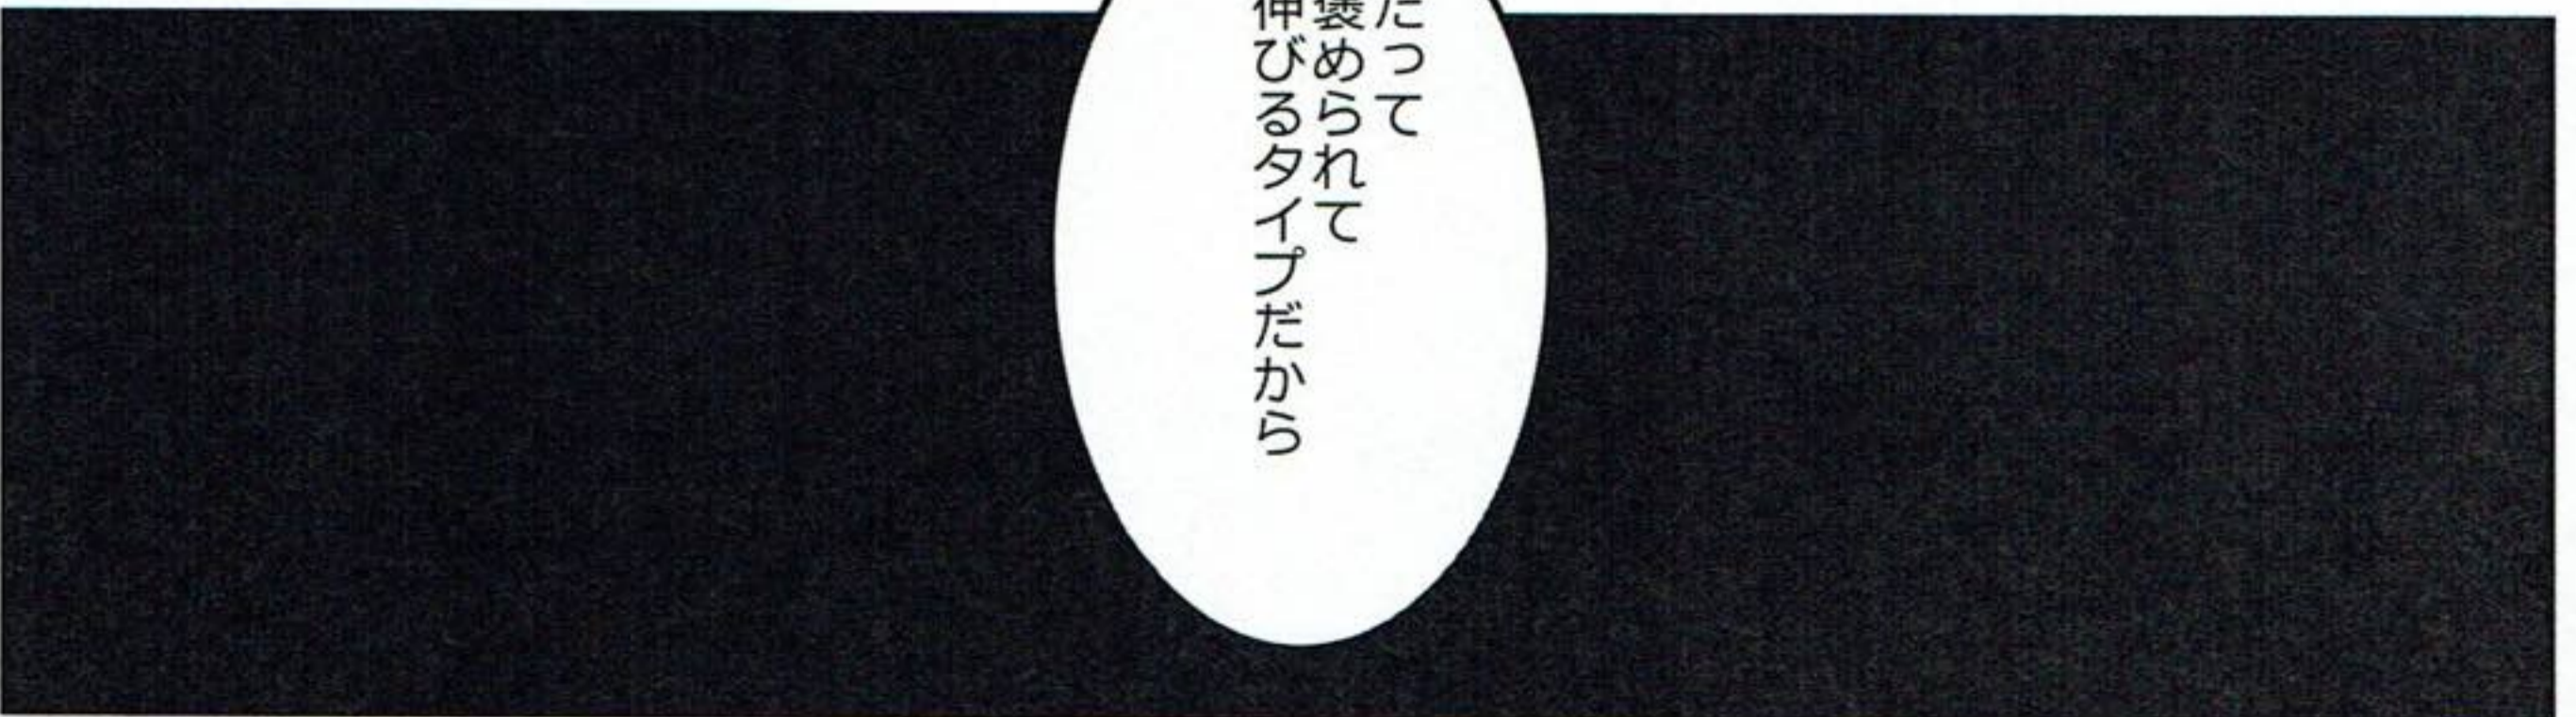 だって
褒められて
伸びるタイプだから